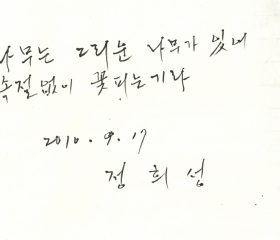 나무는 그리운 나무가 있어
속절없이 꽃피는기라
2010. 9. 17
정희성